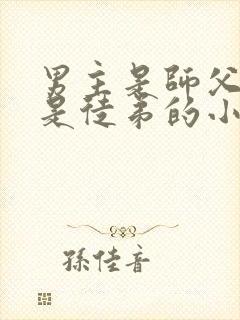 男主是師父
是徒弟的小
孫佳音